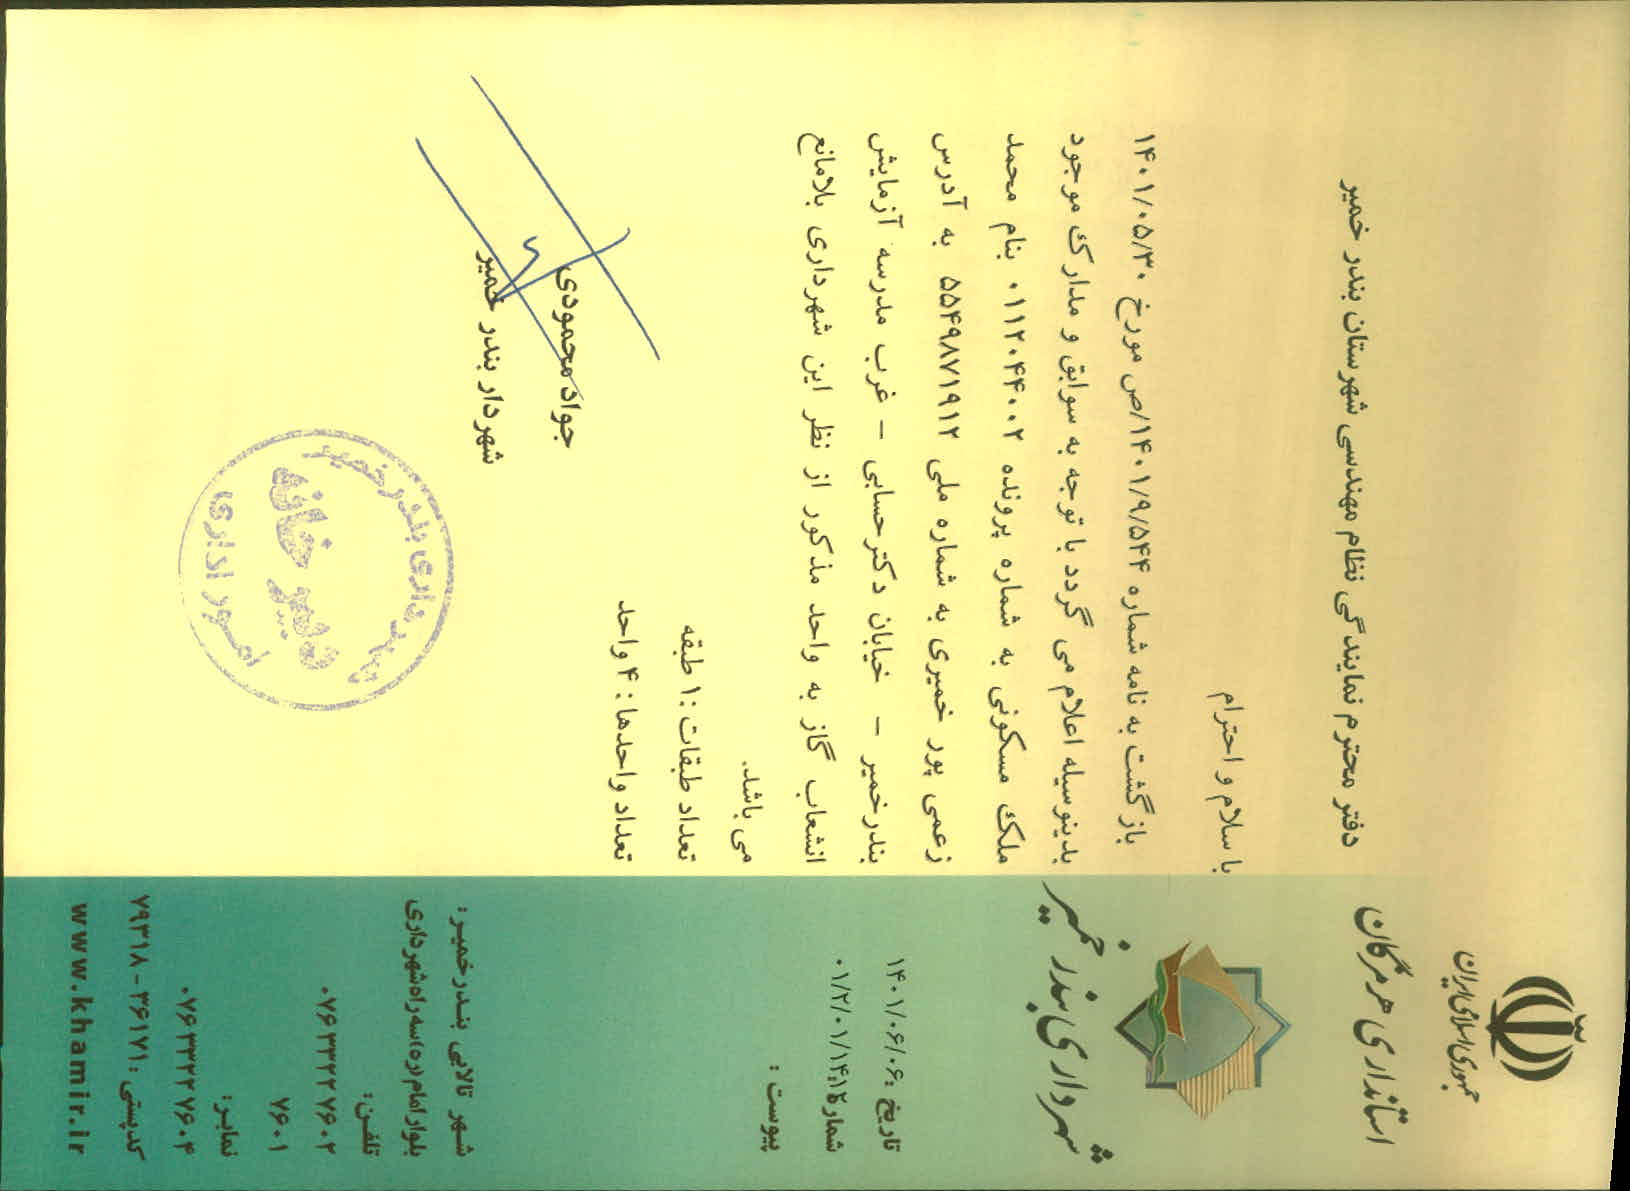 جمهوری اسلامی ایران
استانداری هرمزگان
شهرداری بندر خمیر
تاریخ : ۱۴۰۱/۰۶/۰۶
شماره
پیوست :
دفتر محترم نمایندگی نظام مهندسی شهرستان بندر خمیر
با سلام و احترام
بازگشت به نامه شماره ۱۴۰۱/۹/۵۴۴/ص مورخ ۱۴۰۱/۰۵/۳۰
بدینوسیله اعلام می گردد با توجه به سوابق و مدارک موجود
ملک مسکونی به شماره پرونده ۰۱۱۲۰۴۴۰۰۲ بنام محمد
زعمی پور خمیری به شماره ملی ۵۵۴۹۸۷۱۹۱۲ به آدرس
بندرخمیر - خیابان دکترحسابی - غرب مدرسه آزمایش
انشعاب گاز به واحد مذکور از نظر این شهرداری بلامانع
می باشد.
تعداد طبقات :۱ طبقه
تعداد واحدها : ۴ واحد
جواد محمودی
شهردار بندر خمیر
شهرداری بندر خمیر
دبیر خانه
امور اداری
شهر تالابی بندرخمیر :
بلوار امام(ره)سه راه شهرداری
تلفن:
۰۷۶۳۳۲۲۷۶۰۲
۷۶۰۱
نمابر:
۰۷۶۳۳۲۲۷۶۰۴
کدپستی : ۳۶۱۷۱-۷۹۳۱۸
www.khamir.ir